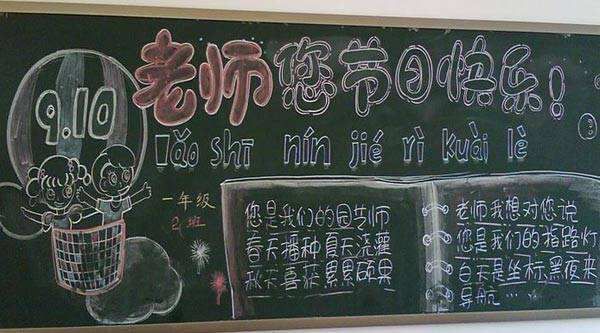 9.10
老师您节日快乐!
lǎo shī nín jié rì kuài lè
一年级
2班
您是我们的园艺师
春天播种夏天浇灌
秋天喜获累累硕果
老师我想对您说
您是我们的指路灯
白天是坐标,黑夜来
导航……